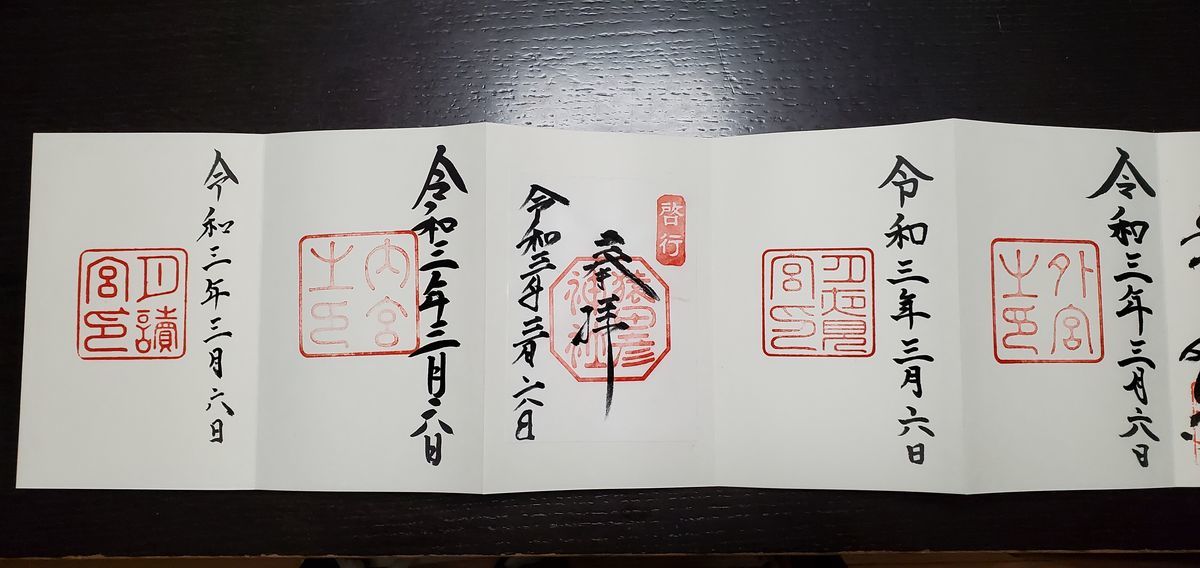 令和三年三月六日
外宮
之印
令和三年三月六日
月夜見
宮印
啓行
猿田彦
神社
奉拝
令和三年三月六日
令和三年三月六日
内宮
之印
令和三年三月六日
月讀
宮印